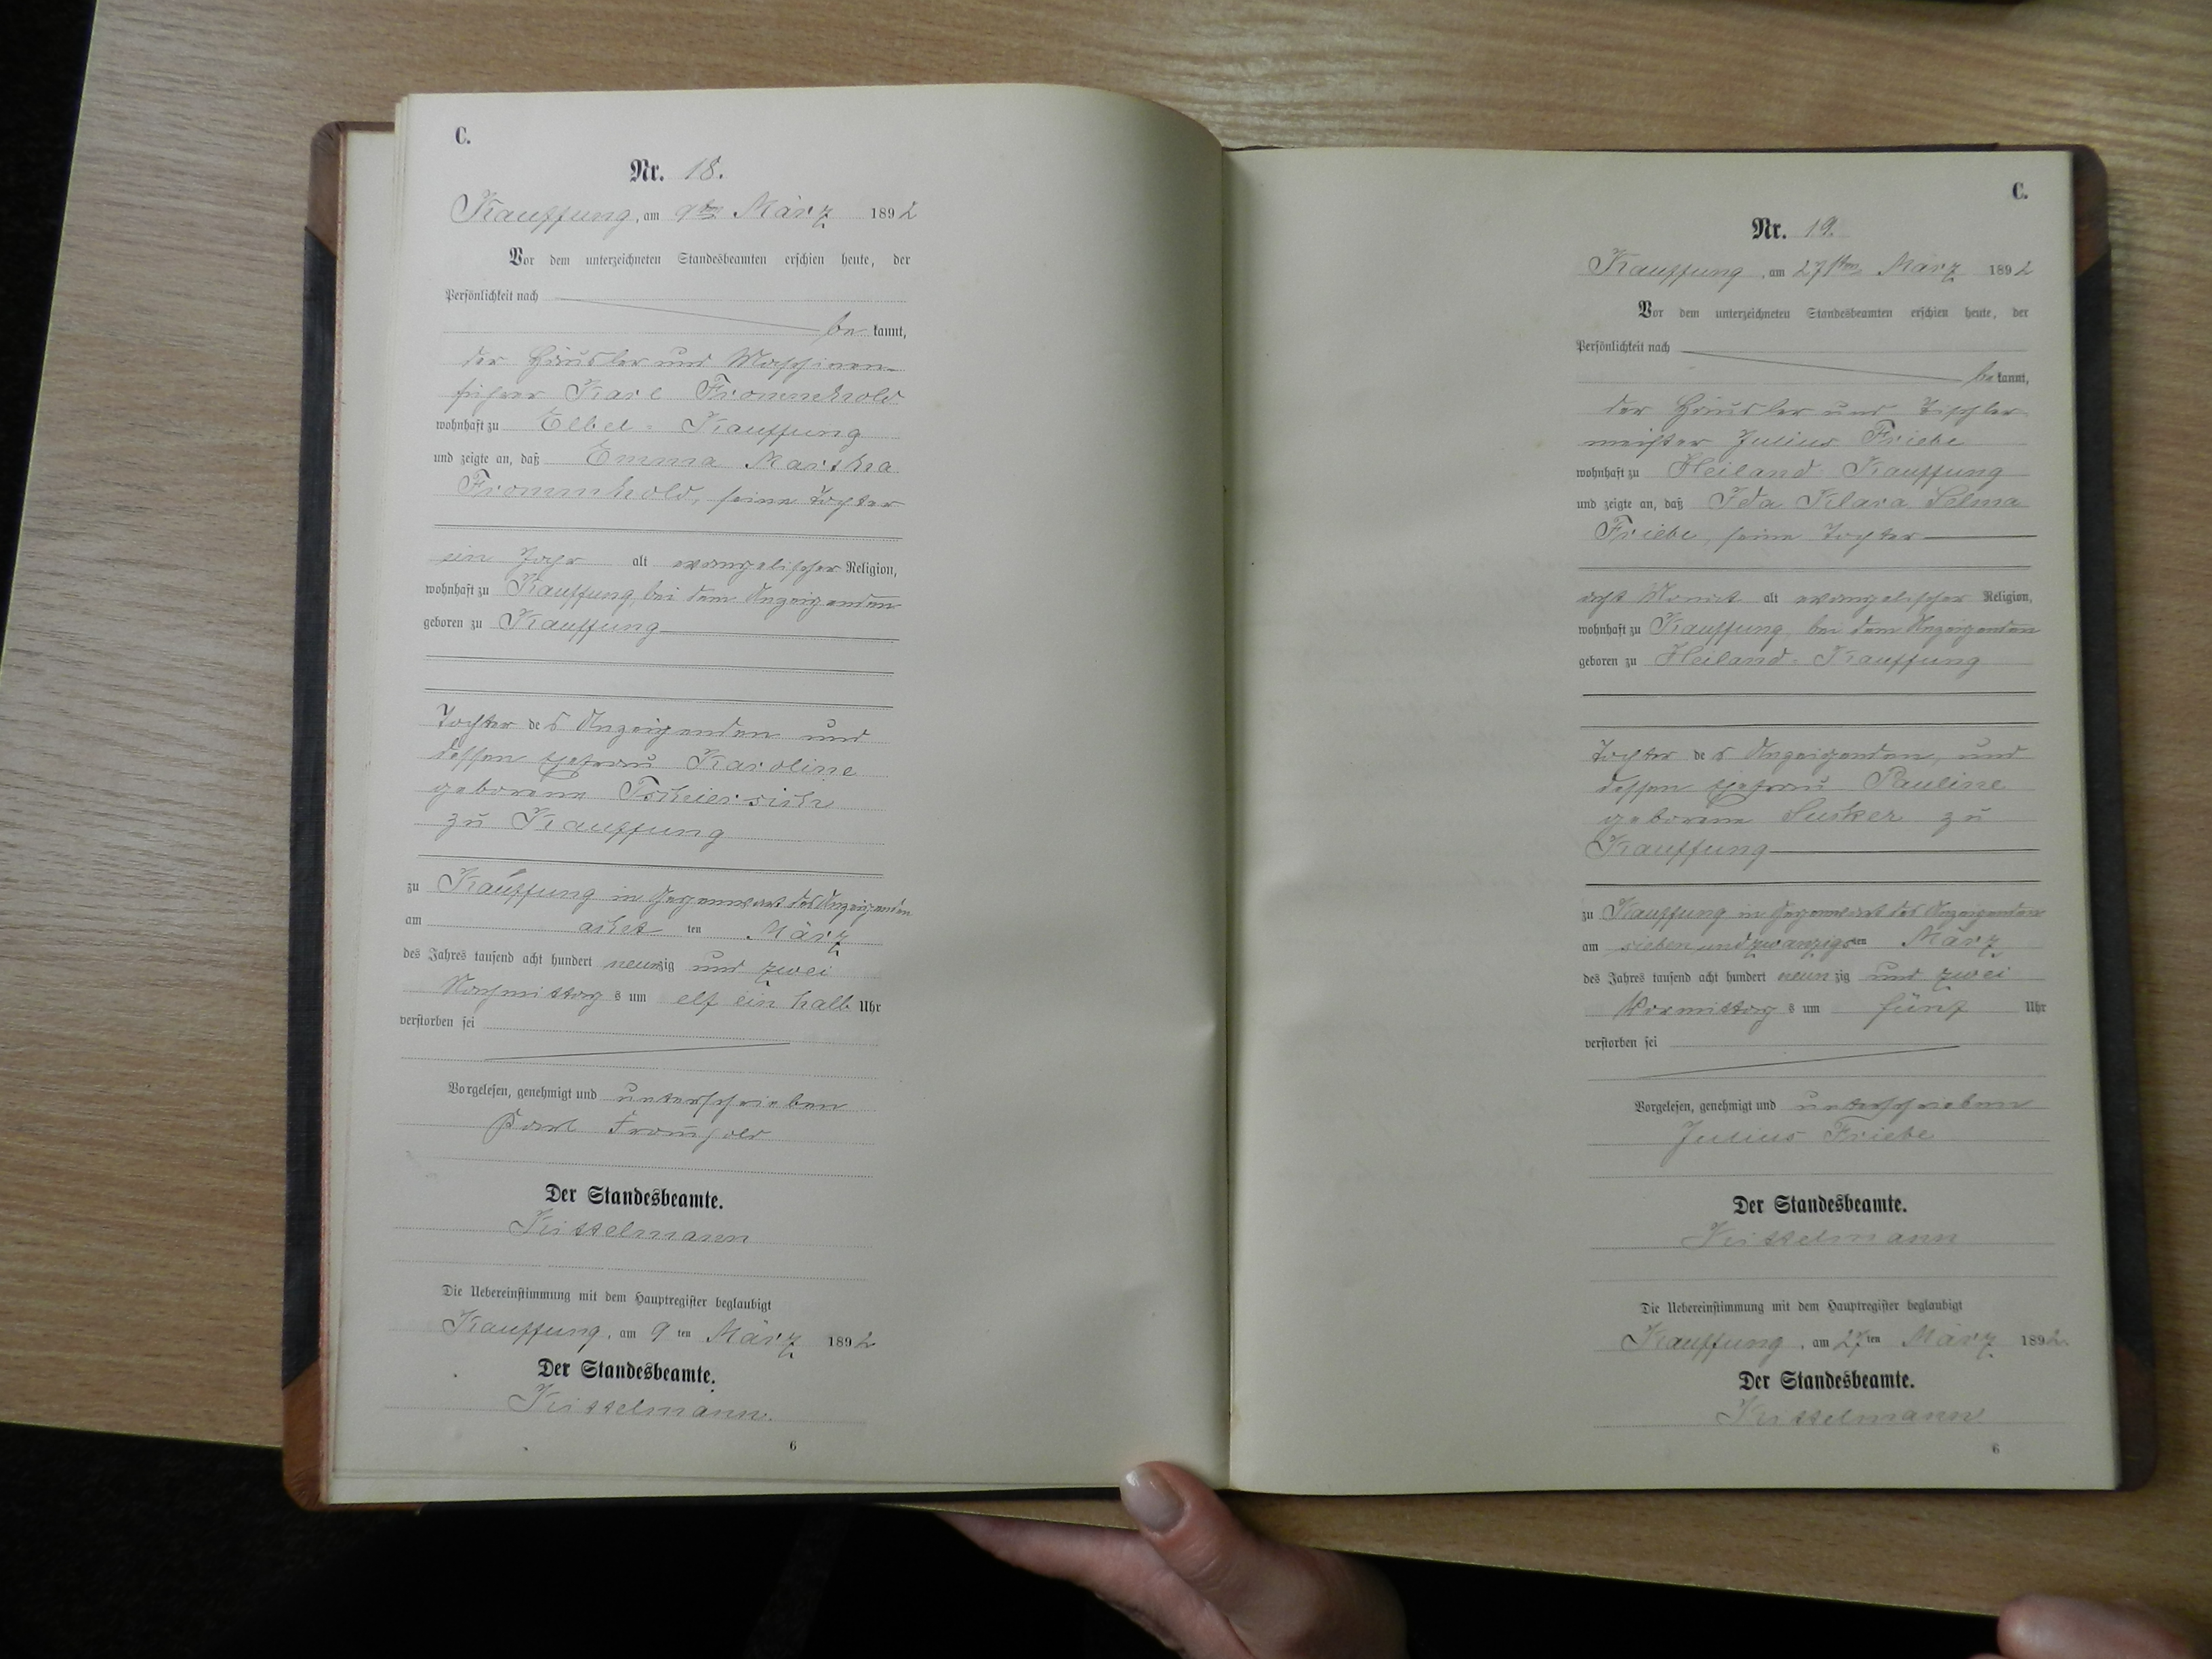 C.
Nr. 18.
Kauffung, am 9ten März 1892
Vor dem unterzeichneten Standesbeamten erschien heute, der
Persönlichkeit nach
be kannt,
der Häusler und Maschinen-
führer Karl Frommhold
wohnhaft zu Elbel-Kauffung
und zeigte an, daß Emma Martha
Frommhold, seine Tochter
ein Jahr alt evangelischer Religion,
wohnhaft zu Kauffung, bei dem Anzeigenden
geboren zu Kauffung
Tochter des Anzeigenden und
dessen Ehefrau Karoline
geborenen
zu Kauffung
zu Kauffung in Gegenwart des Anzeigenden
am achtten März
des Jahres tausend acht hundert neunzig und zwei
Nachmittags um elf ein halb Uhr
verstorben sei
Vorgelesen, genehmigt und unterschrieben
Karl From̄hold
Der Standesbeamte.
Kisselmann
Die Uebereinstimmung mit dem Hauptregister beglaubigt
Kauffung, am 9ten März 1892
Der Standesbeamte.
Kisselmann.
6
C.
Nr. 19.
Kauffung, am 27sten März 1892
Vor dem unterzeichneten Standesbeamten erschien heute, der
Persönlichkeit nach
be kannt,
der Häusler und Tischler-
meister Julius Friebe
wohnhaft zu Heiland-Kauffung
und zeigte an, daß Ida Klara Selma
Friebe, seine Tochter
acht Monat alt evangelischer Religion,
wohnhaft zu Kauffung, bei dem Anzeigenden
geboren zu Heiland-Kauffung
Tochter des Anzeigenden, und
dessen Ehefrau Pauline
geborenen zu
Kauffung
zu Kauffung in Gegenwart des Anzeigenden
am sieben und zwanzigsten März
des Jahres tausend acht hundert neunzig und zwei
Vormittags um fünf Uhr
verstorben sei
Vorgelesen, genehmigt und unterschrieben
Julius Friebe
Der Standesbeamte.
Kisselmann
Die Uebereinstimmung mit dem Hauptregister beglaubigt
Kauffung, am 27ten März 1892.
Der Standesbeamte.
Kisselmann
6